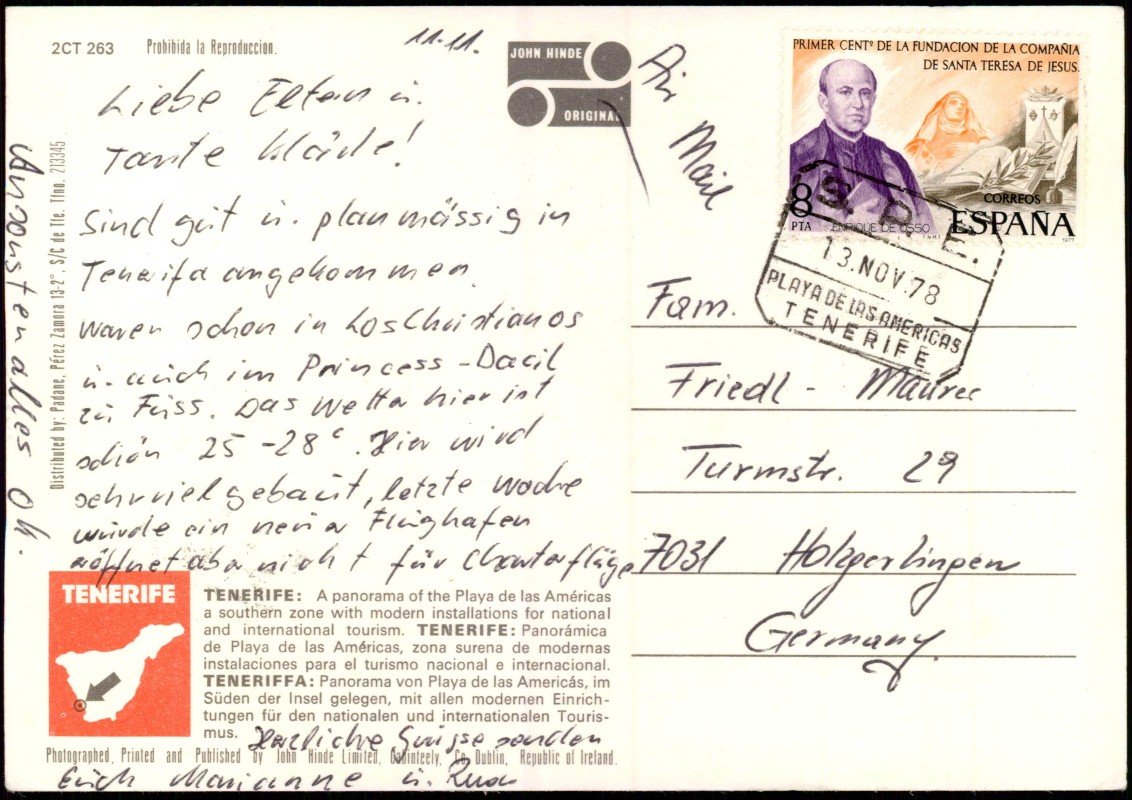 2CT 263 Prohibida la Reproduccion.
11.11.
JOHN HINDE
ORIGINAL
Liebe Eltern u.
Tante Kläre!
Sind gut u. planmässig in
Tenerifa angekommen.
Waren schon in LosChristianos
u. auch im Princess-Dacil
zu Fuss. Das Wetter hier ist
schön 25-28°. Hier wird
sehr viel gebaut, letzte Woche
wurde ein neuer Flughafen
eröffnet aber nicht für Charterflüge
Ansonsten alles ok.
Distributed by: Padane, Pérez Zamora 13-2°, S/C de Tfe. Tfno. 213345
TENERIFE
TENERIFE: A panorama of the Playa de las Américas
a southern zone with modern installations for national
and international tourism. TENERIFE: Panorámica
de Playa de las Américas, zona surena de modernas
instalaciones para el turismo nacional e internacional.
TENERIFFA: Panorama von Playa de las Americás, im
Süden der Insel gelegen, mit allen modernen Einrich-
tungen für den nationalen und internationalen Touris-
mus.
Herzliche Grüsse senden
Photographed, Printed and Published by John Hinde Limited, Cabinteely, Co. Dublin, Republic of Ireland.
Erich Marianne u.
Air
Mail
PRIMER CENTº DE LA FUNDACION DE LA COMPAÑIA
DE SANTA TERESA DE JESUS.
8
PTA
ENRIQUE DE OSSO
CORREOS
ESPAÑA
1977
S. P. E.
13.NOV.78
PLAYA DE LAS AMERICAS
TENERIFE
Fam.
Friedl - Maurer
Turmstr. 29
7031 Holzgerlingen
Germany